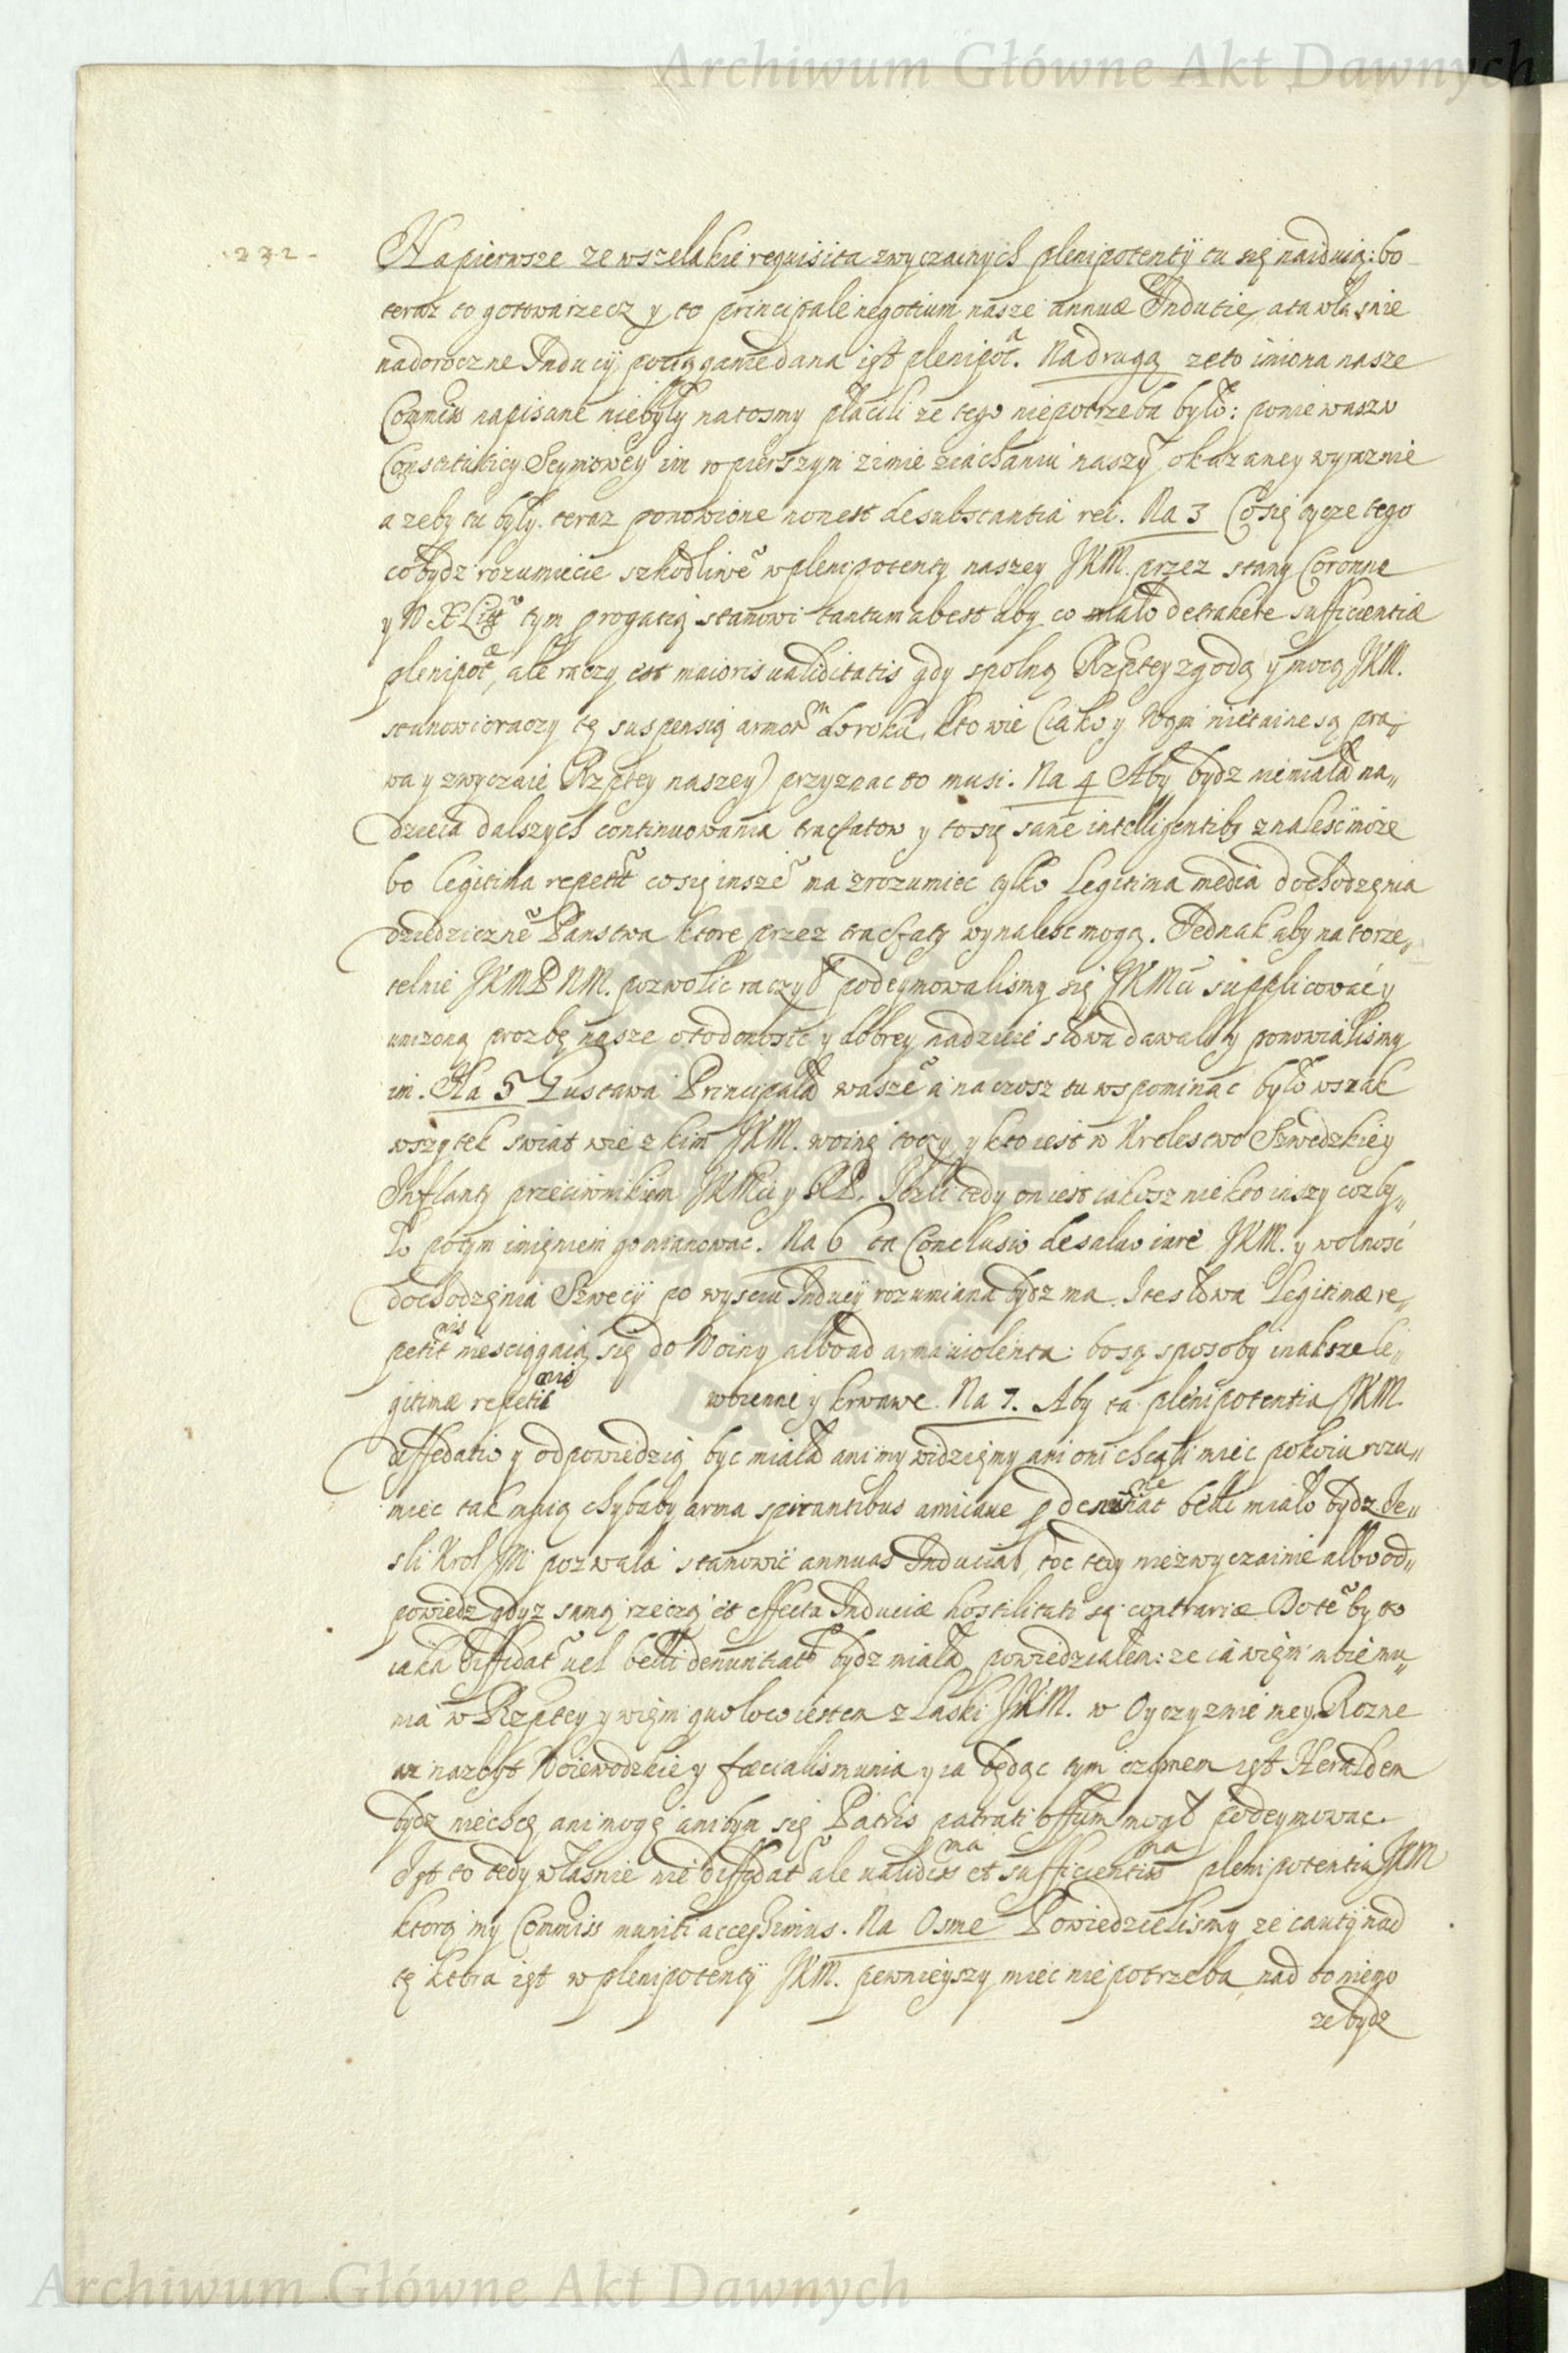 Archiwum Główne Akt Dawnych
232
Na pierwsze ze wszelakie requisita zwyczainych plenipotentÿ tu się naiduią: bo
teraz to gotowa rzecz y to principale negotium nasze annuæ Indutie, a ta własnie
na doroczne Inducij pociągganie dana iest plenipot.a Na drugą ze to imiona nasze
Commiss napisane niebyły na tosmy płacili ze tego niepotrzeba było: poniewasz w
Constitutiey Seymowey im w pierszym zimie ziachaniu naszÿ okazaney wyraznie
a zeby tu były teraz ponowione non est de substantia rei. Na 3 Co się tycze tego
co bydz rozumiecie szkodliwe͠ w plenipotenty naszey JKM. przez stany Coronne
y W X Litt tym progatią stanowi tantum abest aby co mało detrahere sufficientiæ
plenipot, ale raczy est maioris ualiditatis gdy spolną Rzptey zgodą y mocą JKM.
stanowic raczy tę suspensią armor do roku, kto wie (iako y Wam nietaine są pra„
wa y zwyczaie Rzptey naszey) przyznac to musi. Na 4 Aby bydz niemiała na„
dzieia dalszych continuowania tractatow y to się sane intelligentib9 znalesc moze
bo legitima repetit co się insze͠ ma zrozumiec tylko Legitima media dochodzęnia
dziedziczne͠ Panstwa ktore przez tractaty wynalesc mogą. Jednak aby na to rze„
telnie JKMP NM. pozwolic raczył podeymowalismy się JKMci supplicowac y
unizoną prozbę nasze o to donosic y dobrey nadzieie słowa dawali y ponowialismy
im. Na 5 Gustawa Principała wasze͠ a na czosz tu wspominac było wszak
wszytek swiat wie z kim JKM. woinę toczy, y kto iest w Krolestwo Szwedzkiey
Inflanty przeciwnikiem JKMci y RP. Jezli tedy on iest iakosz niekto inszy coz by„
ło potym imięniem go mianowac. Na 6 ta Conclusio de saluo iure JKM. y wolność
dochodzęnia Szwecij po wysciu Inducij rozumiana bydz ma. I te słowa Legitimæ re„
petitnis niesciągaią się do Woiny albo ad arma uiolenta: bo są sposoby inaksze le„
gitimæ repetitonis woienne y krwawe. Na 7. Aby ta plenipotentia JKM
diffidatio y odpowiedzią byc miała ani my widzięmy ani oni chcąli miec pokoiu rozu„
miec tak maią chybaby arma spirantibus amicaue p denuntiat belli miało bydz Je„
sli Krol JM pozwala stanowić annuas Inducias, toc tedy niezwyczainie albo od„
powiedz gdyz samą rzeczą et effecta Induciæ hostilitati są contrariæ Do te͠ by to
iaka diffidat uel belli denuntiat bydz miała powiedziałem: ze ia więm moie mu„
nia w Rzptey y więm quo loco iestem z Łaski JKM. w Oyczyznie mey. Rozne
az nazbyt Woiewodzkie y fæcialis munia y ia będąc tym czÿmem iest Heraldem
bydz niechcę ani mogę ani bym się Patris patrati offium mogł podeymowac.
Jest to tedy własnie nie diffidat ale ualidissma et sufficientissma plenipotentia JKM
ktorą my Commiss muniti accessimus. Na Osme Powiedzielismy ze cautÿ nad
tę ktora iest w plenipotentÿ JKM. pewnieyszy miec niepotrzeba, nad to niego
ze bydz
Archiwum Główne Akt Dawnych